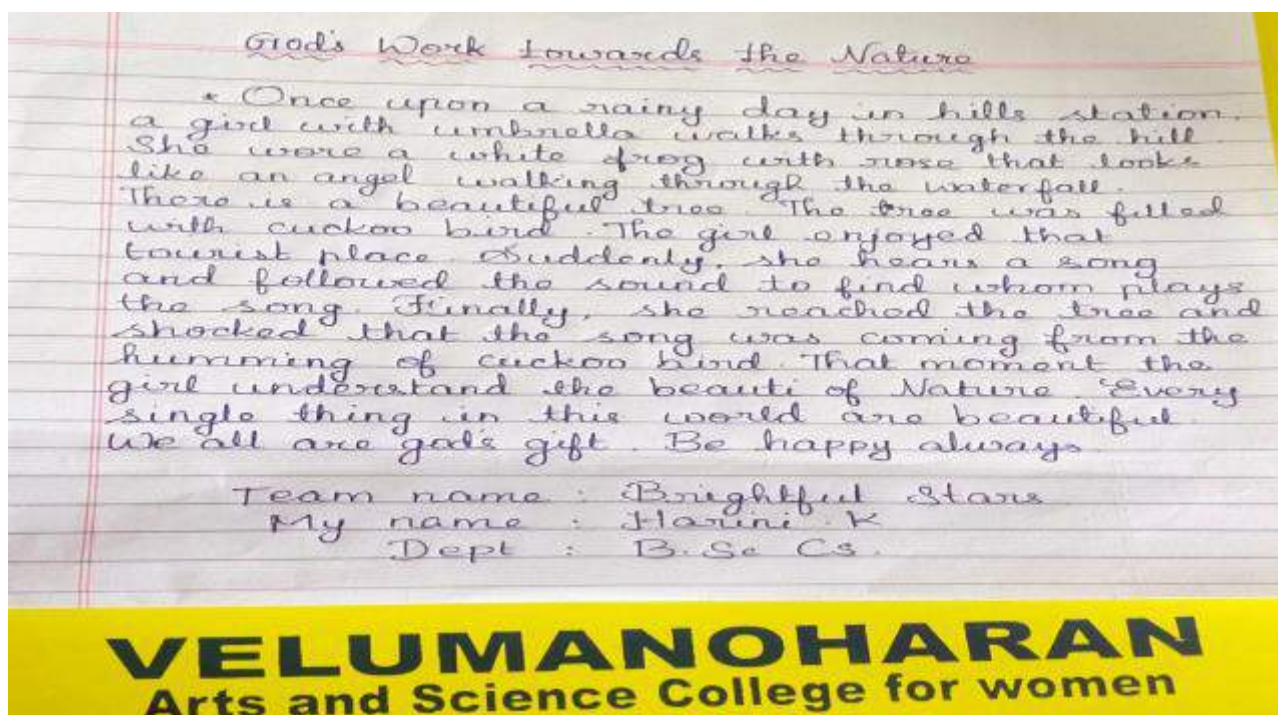 God's Work towards the Nature
* Once upon a rainy day in hills station.
a girl with umbrella walks through the hill.
She wore a white frog with rose that looks
like an angel walking through the waterfall.
There is a beautiful tree. The tree was filled
with cuckoo bird. The girl enjoyed that
tourist place. Suddenly, she hears a song
and followed the sound to find whom plays
the song. Finally, she reached the tree and
shocked that the song was coming from the
humming of cuckoo bird. That moment the
girl understand the beauti of Nature. Every
single thing in this world are beautiful.
We all are gods gift. Be happy always
Team name : Brightful Stars
My name : Harini. K
Dept : B. Sc Cs.
VELUMANOHARAN
Arts and Science College for women